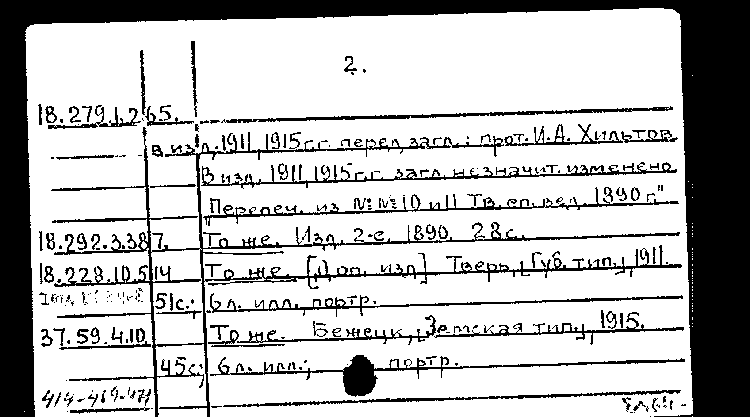 2.
18.279.1.265.
в изд. 1911, 1915 г.г. перед загл.: прот. И.А. Хильтов
В изд. 1911, 1915 г.г. загл. незначит. изменено
"Перепеч. из №№ 10 и 11 Тв. еп. вед. 1890 г."
18.292.3.387. То же. Изд. 2-е. 1890. 28 с.
18.228.10.514 То же. [Доп. изд.] Тверь, [Губ. тип.], 1911.
51 с.; 6 л. илл., портр.
37.59.4.10. То же. Бежецк, [Земская тип.], 1915.
45 с.; 6 л. илл.; портр.